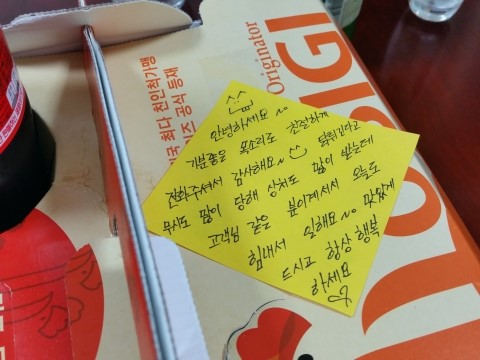 Originator
BIG
국 최다 천인척가맹
즈 공식 등재
안녕하세요~
기분좋은 목소리로 친절하게
전화주셔서 감사해요~ 닭튀긴다고
무시도 많이 당해 상처도 많이 받는데
고객님 같은 분이계셔서 오늘도
힘내서 일해요~ 맛있게
드시고 항상 행복
하세요